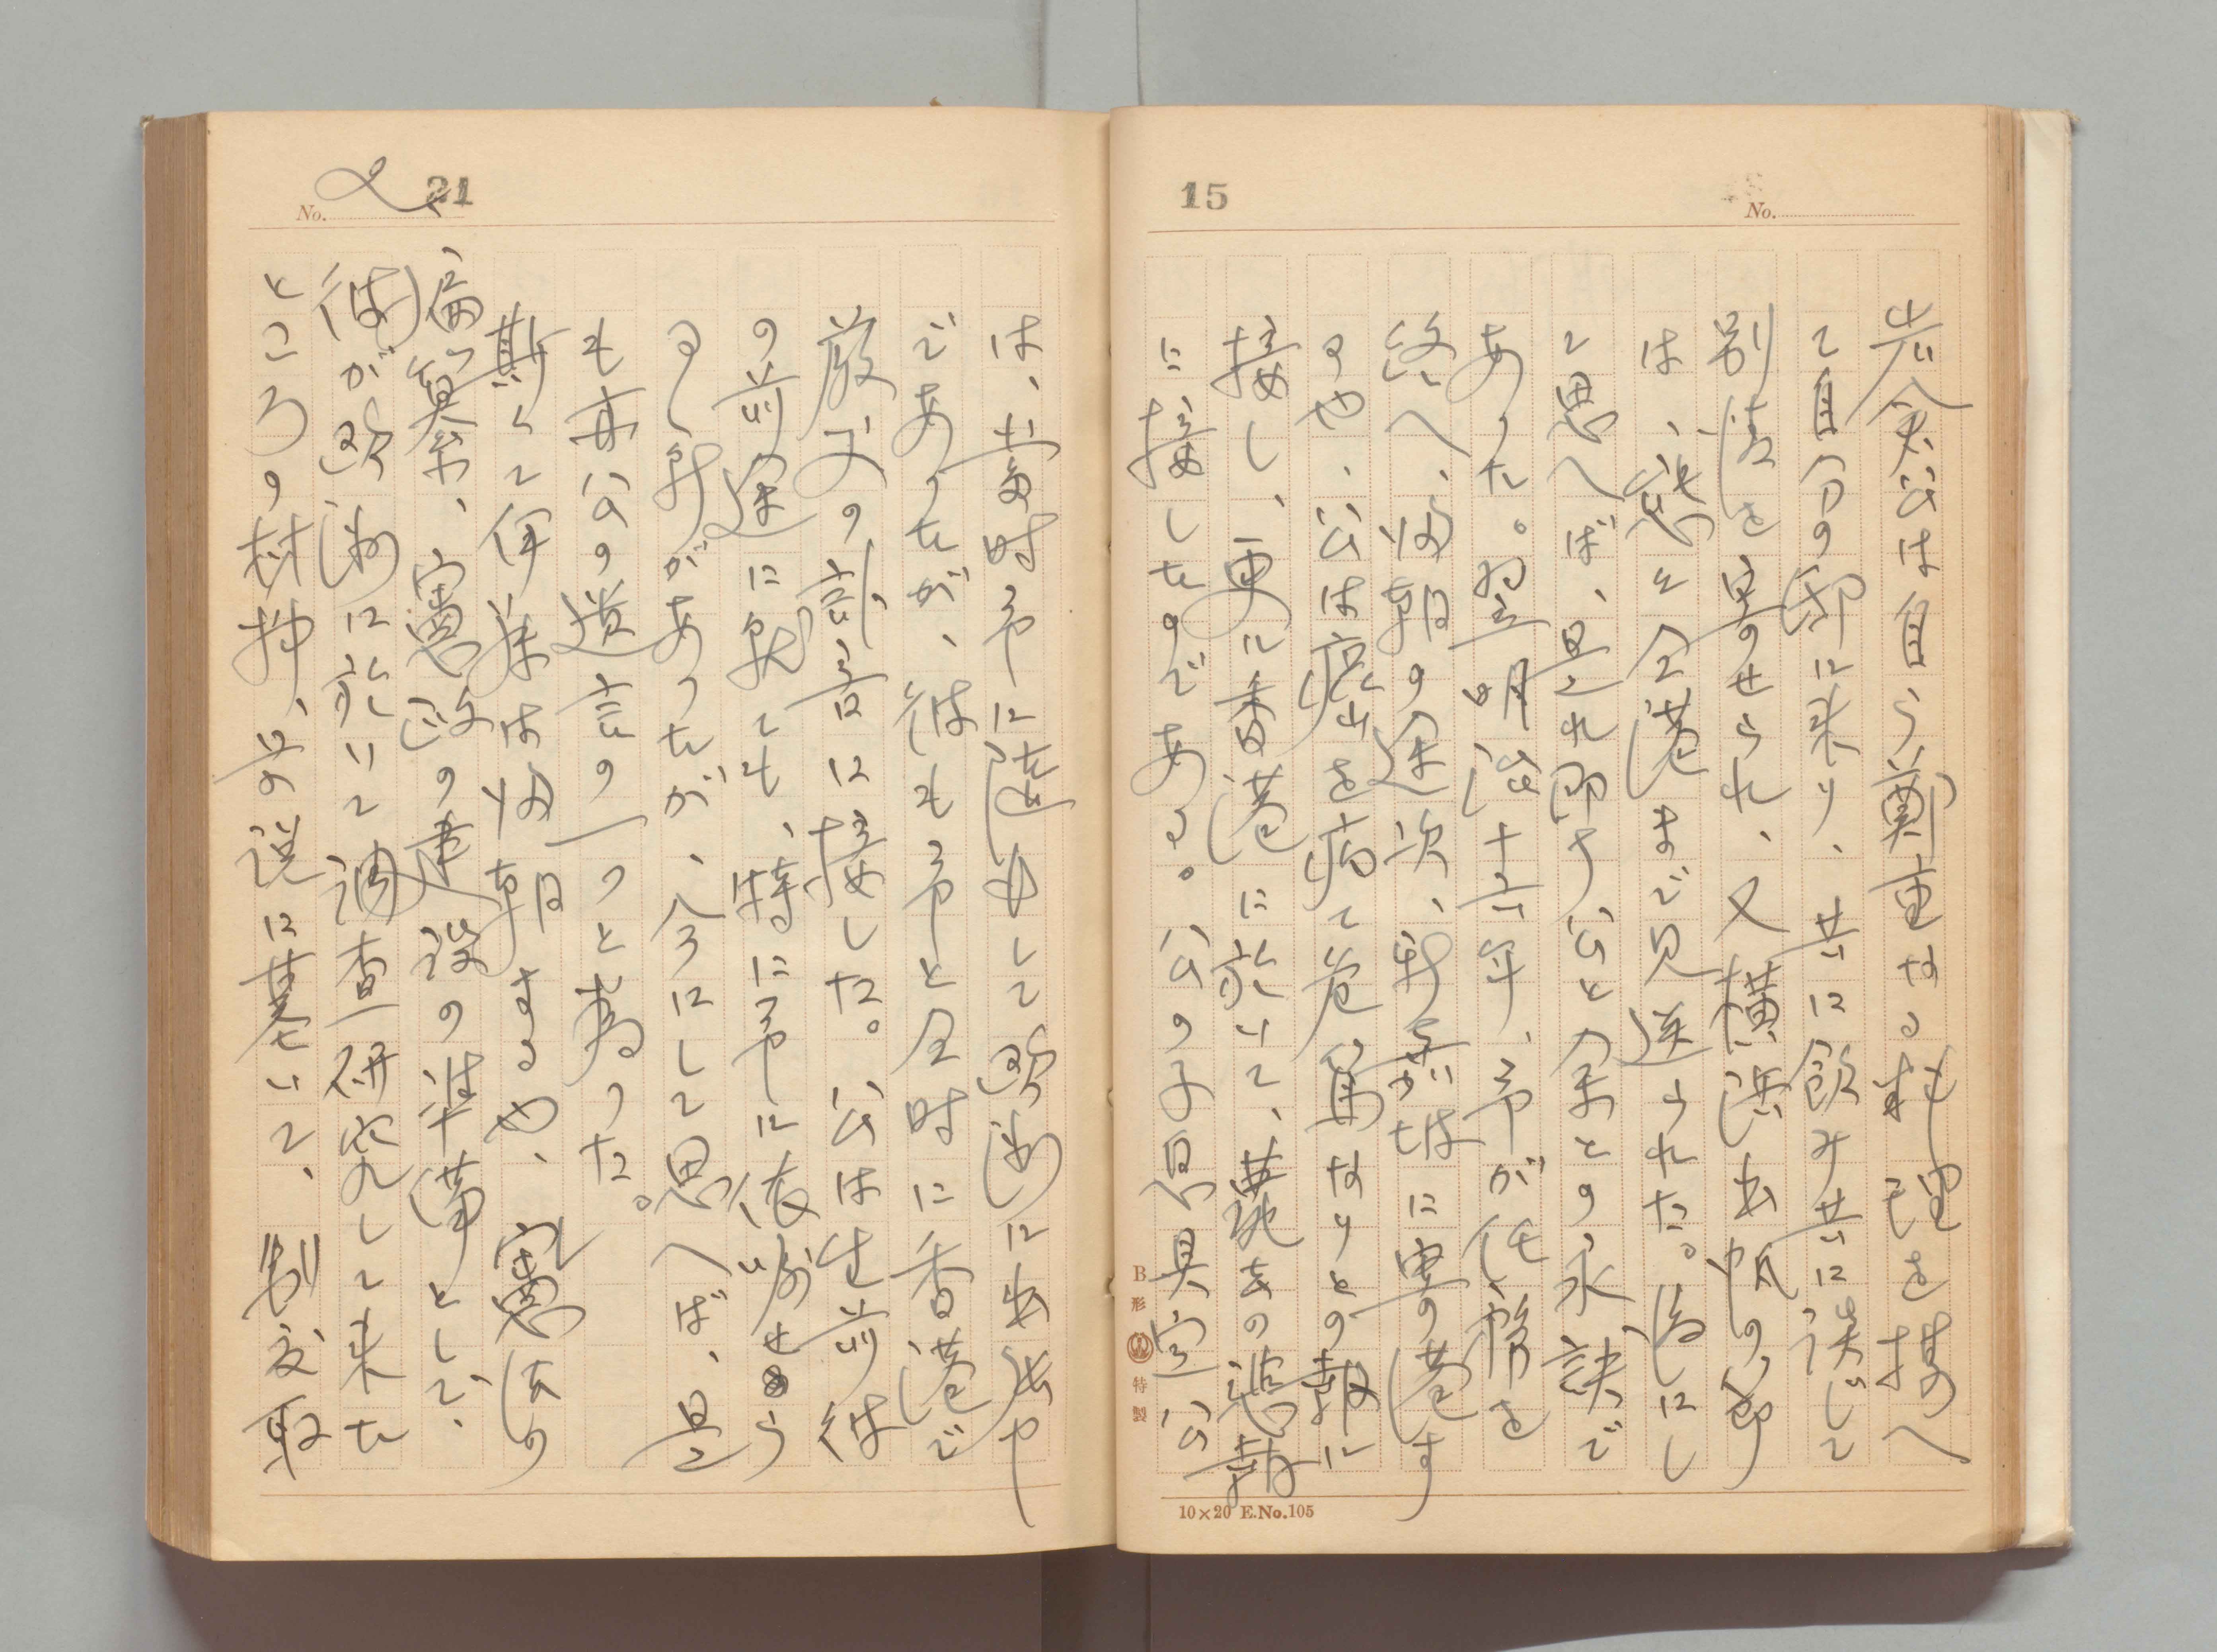 15
No.
岩倉公は自ら鄭重なる料理を携へ
て自分の邸に来り、共に飲み共に談じて
別情を寄せられ、又横浜出帆の節
は、態々仝港まで見送られた。後にし
て思へば、是れ即ち公と余との永訣で
あった。翌明治十六年、予が任務を
終へ、帰朝の途次、新嘉坡に寄港す
るや、公は病を 危篤なりとの報に
接し、更に香港に於いて、薨去の悲報
に接したのである。公の子息具定公
B形 特製
10×20 E.No.105
No. 21
は、当時予に随つして欧洲に出
であったが、彼も予と仝時に香港で
厳父の訃音に接した。公は生前彼
の前途に就ても、特に予に依嘱せら
るゝ所があつたが、今にして思へば、是
も亦公の遺言の一つと為った。
斯くて伊藤は帰朝するや、憲法の
編纂、憲政の建設の準備として、
彼が欧洲に於いて調査研究して来た
ところの材料、並の説に基いて、制度取